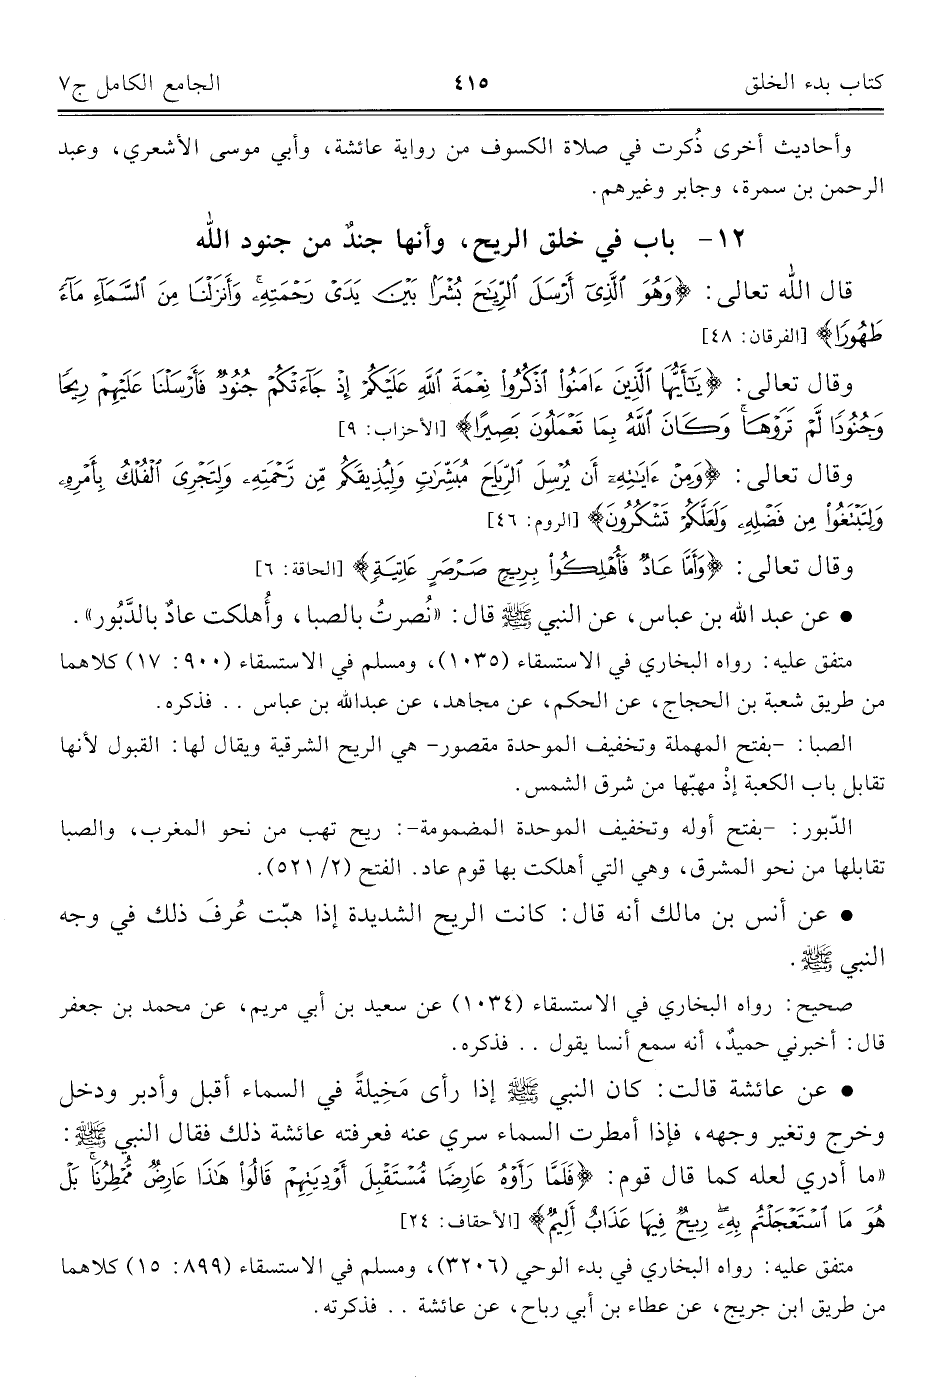 كتاب بدء الخلق ٤١٥ الجامع الكامل ج٧
وأحاديث أخرى ذُكرت في صلاة الكسوف من رواية عائشة، وأبي موسى الأشعري، وعبد
الرحمن بن سمرة، وجابر وغيرهم.
١٢- باب في خلق الريح، وأنها جندٌ من جنود الله
قال الله تعالى: ﴿وَهُوَ ٱلَّذِىٓ أَرْسَلَ ٱلرِّيَـٰحَ بُشْرًۢا بَيْنَ يَدَىْ رَحْمَتِهِۦ ۚ وَأَنزَلْنَا مِنَ ٱلسَّمَآءِ مَآءً
طَهُورًا﴾ [الفرقان: ٤٨]
وقال تعالى: ﴿يَـٰٓأَيُّهَا ٱلَّذِينَ ءَامَنُوا۟ ٱذْكُرُوا۟ نِعْمَةَ ٱللَّهِ عَلَيْكُمْ إِذْ جَآءَتْكُمْ جُنُودٌ فَأَرْسَلْنَا عَلَيْهِمْ رِيحًا
وَجُنُودًا لَّمْ تَرَوْهَا ۚ وَكَانَ ٱللَّهُ بِمَا تَعْمَلُونَ بَصِيرًا﴾ [الأحزاب: ٩]
وقال تعالى: ﴿وَمِنْ ءَايَـٰتِهِۦٓ أَن يُرْسِلَ ٱلرِّيَاحَ مُبَشِّرَٰتٍ وَلِيُذِيقَكُم مِّن رَّحْمَتِهِۦ وَلِتَجْرِىَ ٱلْفُلْكُ بِأَمْرِهِۦ
وَلِتَبْتَغُوا۟ مِن فَضْلِهِۦ وَلَعَلَّكُمْ تَشْكُرُونَ﴾ [الروم: ٤٦]
وقال تعالى: ﴿وَأَمَّا عَادٌ فَأُهْلِكُوا۟ بِرِيحٍ صَرْصَرٍ عَاتِيَةٍ﴾ [الحاقة: ٦]
● عن عبد الله بن عباس، عن النبي ﷺ قال: «نُصرتُ بالصبا، وأُهلكت عادٌ بالدَّبُور».
متفق عليه: رواه البخاري في الاستسقاء (١٠٣٥)، ومسلم في الاستسقاء (٩٠٠: ١٧) كلاهما
من طريق شعبة بن الحجاج، عن الحكم، عن مجاهد، عن عبدالله بن عباس .. فذكره.
الصبا: -بفتح المهملة وتخفيف الموحدة مقصور- هي الريح الشرقية ويقال لها: القبول لأنها
تقابل باب الكعبة إذْ مهبّها من شرق الشمس.
الدّبور: -بفتح أوله وتخفيف الموحدة المضمومة-: ريح تهب من نحو المغرب، والصبا
تقابلها من نحو المشرق، وهي التي أهلكت بها قوم عاد. الفتح (٢/ ٥٢١).
● عن أنس بن مالك أنه قال: كانت الريح الشديدة إذا هبّت عُرفَ ذلك في وجه
النبي ﷺ.
صحيح: رواه البخاري في الاستسقاء (١٠٣٤) عن سعيد بن أبي مريم، عن محمد بن جعفر
قال: أخبرني حميدٌ، أنه سمع أنسا يقول .. فذكره.
● عن عائشة قالت: كان النبي ﷺ إذا رأى مَخِيلةً في السماء أقبل وأدبر ودخل
وخرج وتغير وجهه، فإذا أمطرت السماء سري عنه فعرفته عائشة ذلك فقال النبي ﷺ:
«ما أدري لعله كما قال قوم: ﴿فَلَمَّا رَأَوْهُ عَارِضًا مُّسْتَقْبِلَ أَوْدِيَتِهِمْ قَالُوا۟ هَـٰذَا عَارِضٌ مُّمْطِرُنَا ۚ بَلْ
هُوَ مَا ٱسْتَعْجَلْتُم بِهِۦ ۖ رِيحٌ فِيهَا عَذَابٌ أَلِيمٌ﴾ [الأحقاف: ٢٤]
متفق عليه: رواه البخاري في بدء الوحي (٣٢٠٦)، ومسلم في الاستسقاء (٨٩٩: ١٥) كلاهما
من طريق ابن جريج، عن عطاء بن أبي رباح، عن عائشة .. فذكرته.